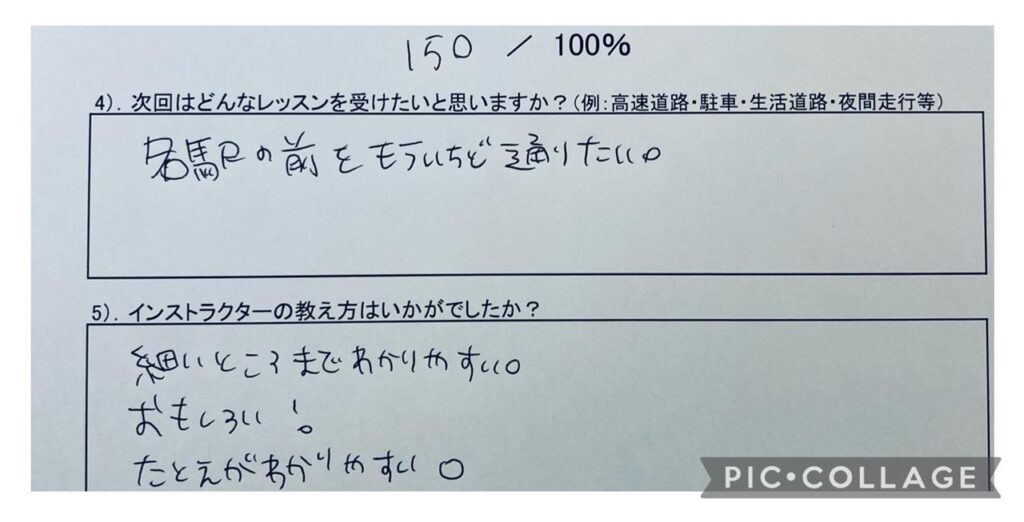 150 / 100%
4). 次回はどんなレッスンを受けたいと思いますか？(例:高速道路・駐車・生活道路・夜間走行等)
名駅の前をもういちど通りたい。
5). インストラクターの教え方はいかがでしたか？
細いところまでわかりやすい。
おもしろい！
たとえがわかりやすい○
PIC•COLLAGE